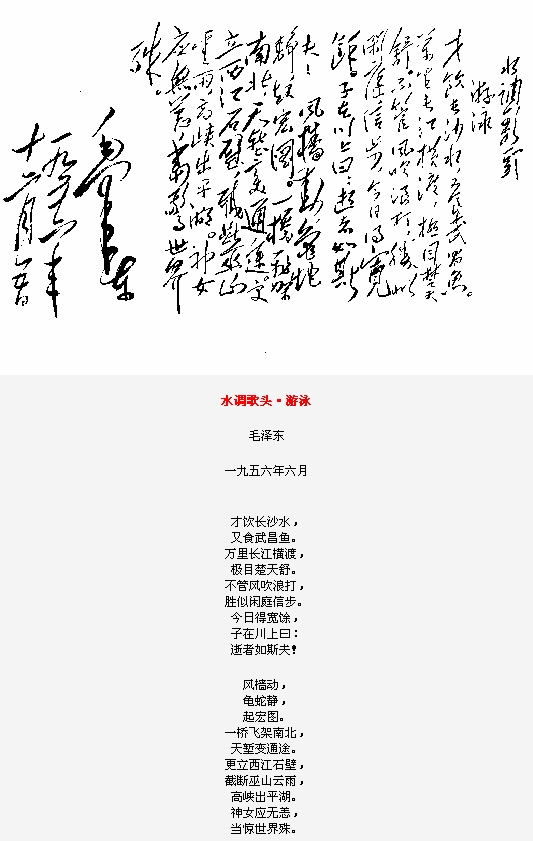 水調歌頭
游泳
才飲長沙水,又食武昌魚。
萬里長江橫渡,極目楚天
舒。不管風吹浪打,勝似
閑庭信步。今日得寬
餘。子在川上曰:逝者如斯
夫!風檣動,龜蛇
靜,起宏圖。一橋飛架
南北,天塹變通途。更
立西江石壁,截斷巫山
雲雨,高峽出平湖。神女
應無恙,當驚世界
殊。
毛澤東
一九五六年
十二月五日
水调歌头·游泳
毛泽东
一九五六年六月
才饮长沙水,
又食武昌鱼。
万里长江横渡,
极目楚天舒。
不管风吹浪打,
胜似闲庭信步。
今日得宽馀,
子在川上曰:
逝者如斯夫!
风樯动,
龟蛇静,
起宏图。
一桥飞架南北,
天堑变通途。
更立西江石壁,
截断巫山云雨,
高峡出平湖。
神女应无恙,
当惊世界殊。